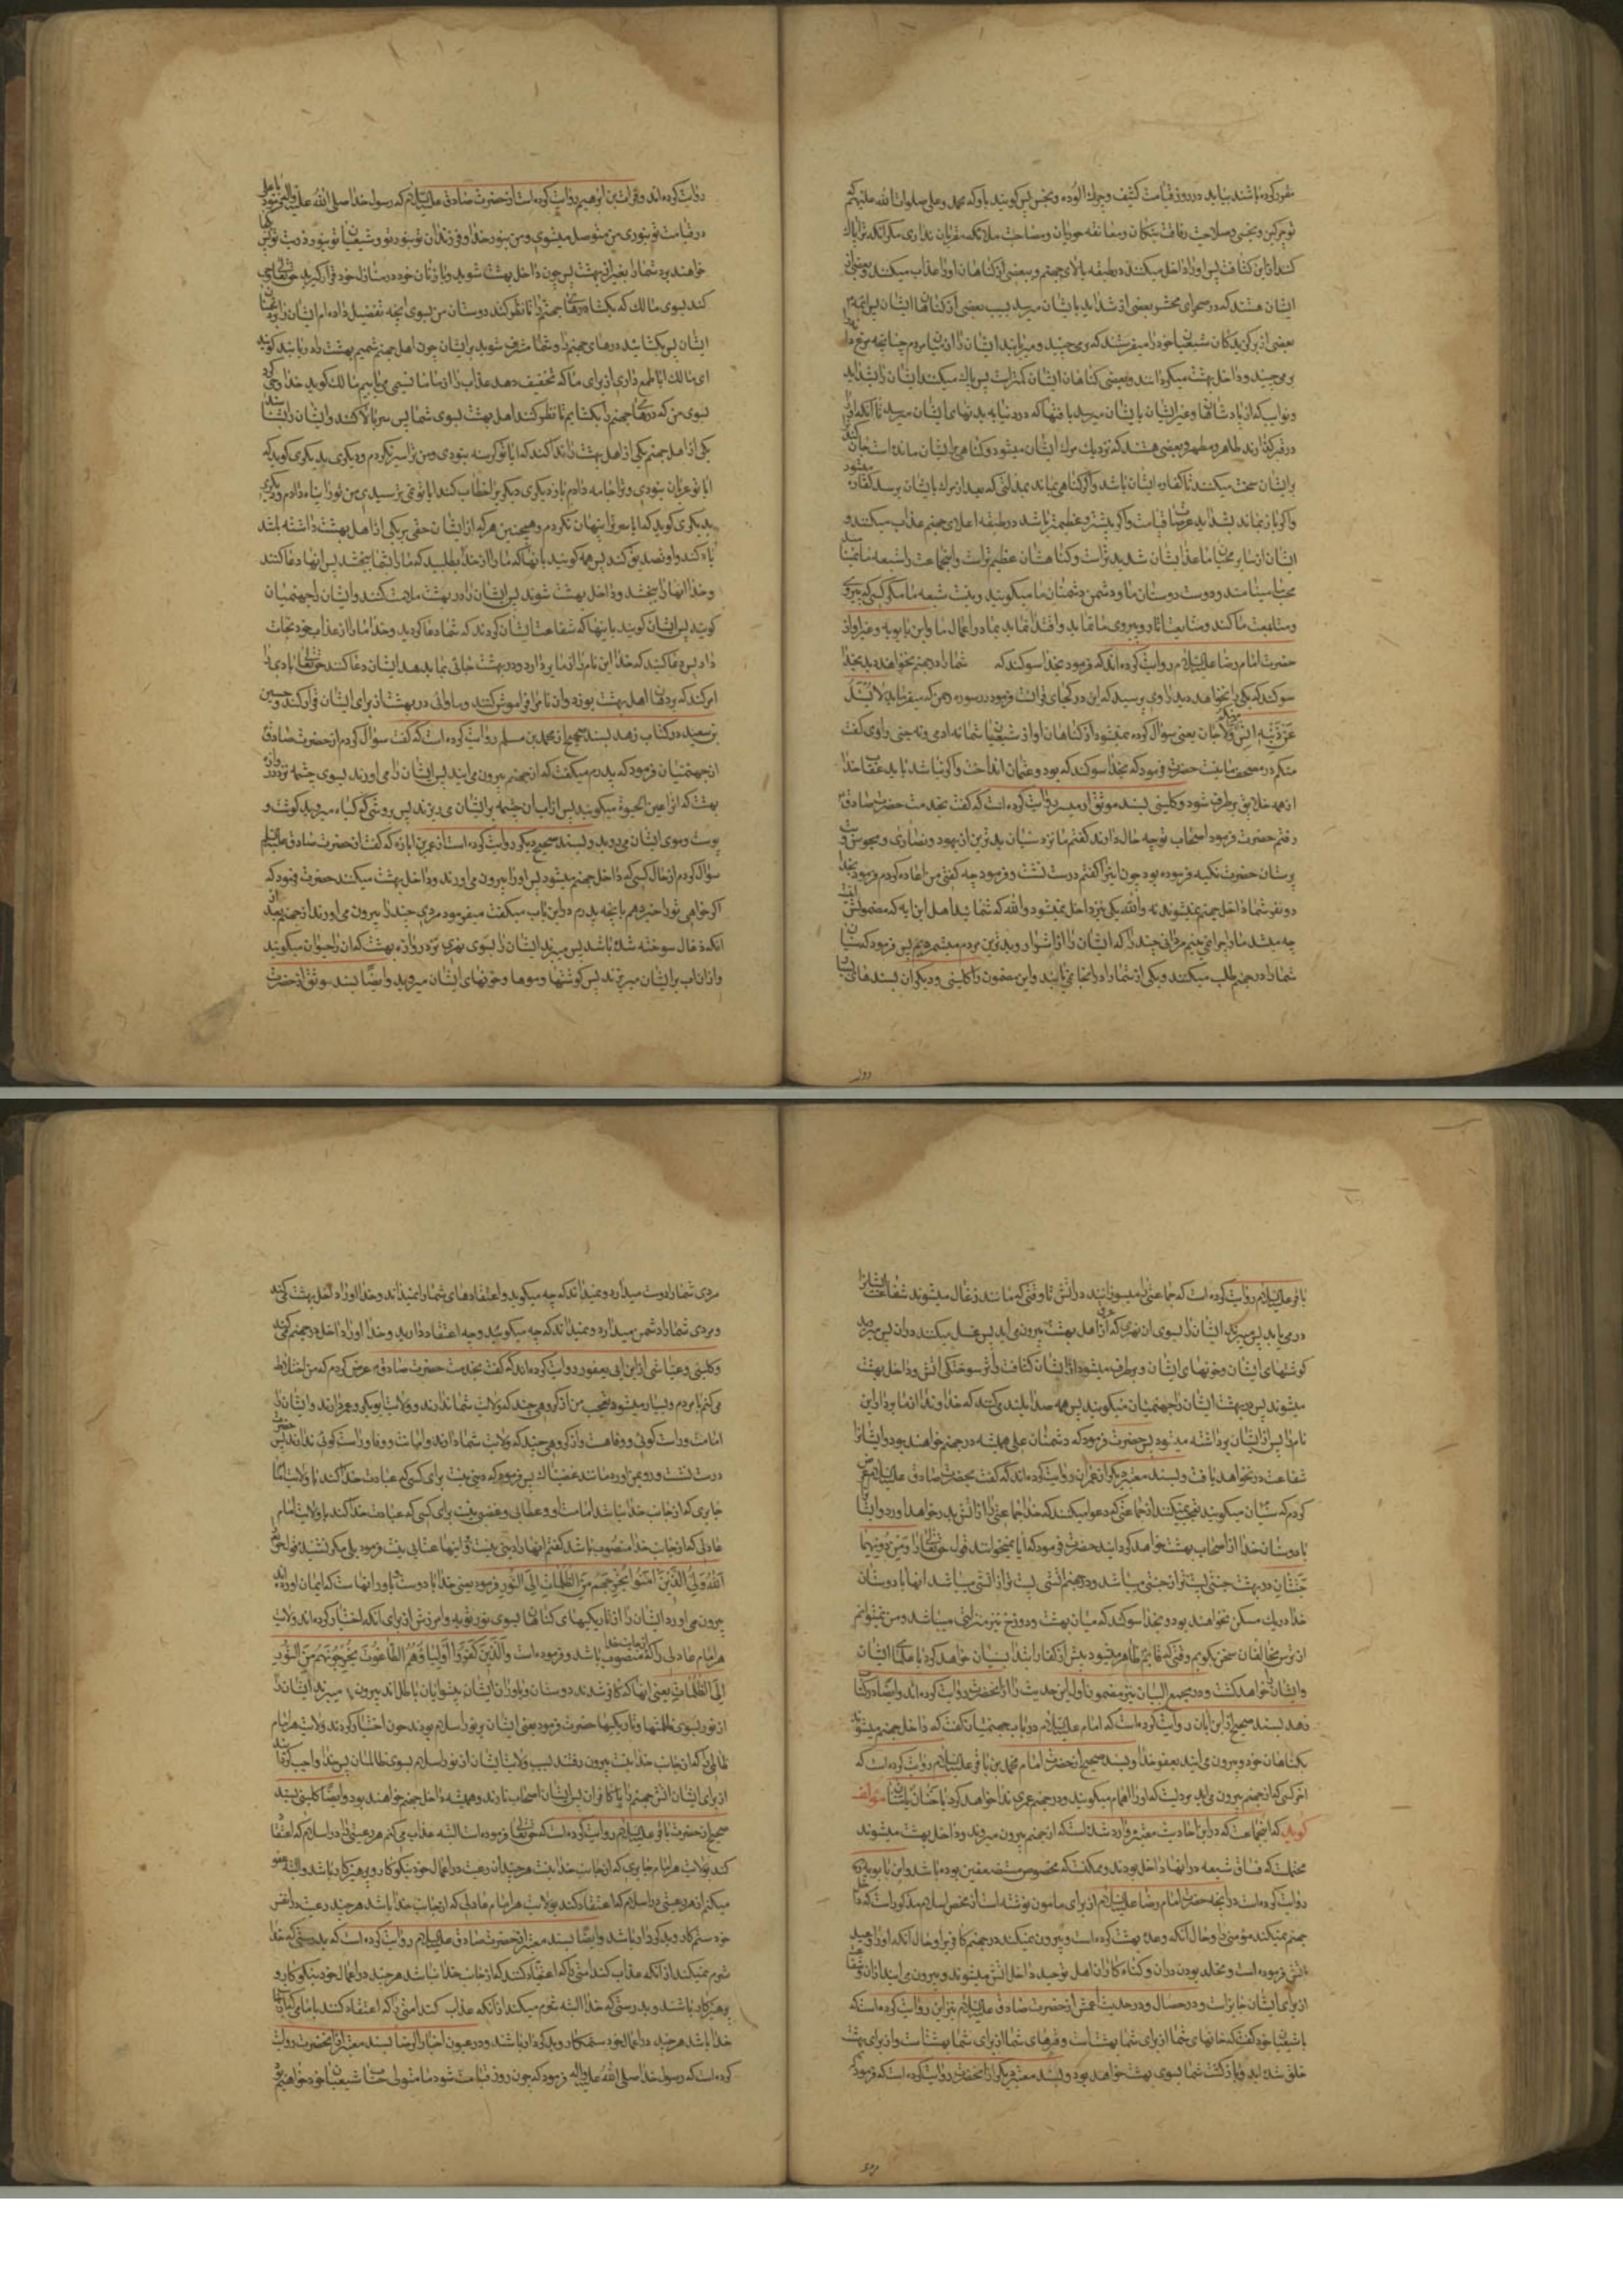 مغرور کرده باشند بیاید در روز قیامت کثیف و چرک آلوده و نجس پس گویند باو که محمد و علی صلوات الله علیهم که
تو چرکین و نجسی و صلاحیت رفاقت نیکان و معانقه حوریان و مصاحبت ملائکه مقربان نداری مگر آنکه ترا پاک
کنند از این کثافت پس او را داخل میکنند در طبقه بالای جهنم و ببعضی از گناهان او را عذاب میکنند و بعضی از
ایشان هستند که در صحرای محشر بعضی از شداید بایشان میرسد بسبب بعضی از گناهان ایشان پس ائمه
بعضی از برگزیدگان شیعیان خود را میفرستند که برمی‌چینند و میربایند ایشان را از میان مردم چنانچه مرغ دانه
برمی‌چیند و داخل بهشت میگردانند و بعضی گناهان ایشان کمتر است پس پاک میکنند ایشان را بشداید
و نوایب که از پادشاهان و غیر ایشان بایشان میرسد یا بآنها که در دنیا به بدنهای ایشان میرسد تا آنکه او را
در قبر گذارند طاهر و مطهر و بعضی هستند که نزدیک مرگ ایشان میشود و گناهی بر ایشان مانده است جان
بر ایشان سخت میکنند تا کفاره ایشان باشد و اگر گناهی بماند بمذلتی که بعد از مرگ بایشان برسد کفاره میشود
و اگر باز بماند بشداید عرصات قیامت و اگر بیشتر و عظیمتر باشد در طبقه اعلای جهنم عذاب میکنند و
ایشان از سایر محبان ما عذابشان شدیدتر است و گناهشان عظیمتر است و اینجماعت را شیعه ما نمینامند
محبان مینامند و دوست دوستان ما و دشمن دشمنان ما میگویند و نیست شیعه ما مگر کسی که پیروی
و متابعت ما کند و متابعت آثار و پیروی ما نماید و اقتدا نماید بما در اعمال ما و ابن بابویه و غیر او از
حضرت امام رضا علیه السلام روایت کرده‌اند که فرمود بخدا سوگند که شما را در جهنم نخواهند دید بخدا
سوگند که یکی را نخواهند دید راوی پرسید که این در کجای قرآنست فرمود در سوره رحمن که میفرماید لا یسئل
عن ذنبه منکم انس ولا جان یعنی سؤال کرده نمیشود از گناهان او از شیعیان شما نه آدمی و نه جنی راوی گفت
منکم در مصحف ما نیست حضرت فرمود که بخدا سوگند که بود و عثمان انداخت و اگر نباشد باید عقاب خدا
از همه خلایق برطرف شود و کلینی بسند موثق از میسر روایت کرده است که گفت بخدمت حضرت صادق
رفتم حضرت فرمود اصحاب تو چه حال دارند گفتم ما نزد سنیان بدترین از یهود و نصاری و مجوس و بت
پرستان حضرت تکیه فرموده بود چون اینرا گفتم درست نشست و فرمود چه گفتی من اعاده کردم فرمود بخدا
دو نفر شما داخل جهنم نمیشوند نه والله یکی نیز داخل نمیشود والله که شما ئید اهل این آیه که مضمونش اینست
چه میشد ما را چرا نمی‌بینیم مردانی چند را که ایشان را از اشرار و بدترین مردم میشمردیم پس فرمود که سنیان
شما را در جهنم طلب میکنند و یکی از شما را در آنجا نمی‌یابند و این مضمون را کلینی و دیگران بسندهای بسیار
روایت کرده‌اند و فرات بن ابراهیم روایت کرده است از حضرت صادق علیه السلام که رسول خدا صلی الله علیه وآله فرمود یا علی
در قیامت تو بنور من متوسل میشوی و من بنور خدا و فرزندان تو بنور تو و شیعیان تو بنور ذریت تو پس کجا
خواهند برد شما را بغیر از بهشت پس چون داخل بهشت شوید و با زنان خود در منازل خود قرار گیرید حق تعالی وحی
کند بسوی مالک که بگشا درهای جهنم را تا نظر کنند دوستان من بسوی آنچه تفضیل داده‌ام ایشان را بر دشمنان
ایشان پس بگشایند درهای جهنم را و شما مشرف شوید بر ایشان چون اهل جهنم شمیم بهشت را دریابند گویند
ای مالک آیا طمع داری از برای ما که تخفیف دهد عذاب را از ما ما نسیمی می‌یابیم مالک گوید خدا وحی کرد
بسوی من که درهای جهنم را بگشایم تا نظر کنند اهل بهشت بسوی شما پس سرها بالا کنند و ایشان را بشناسند
یکی از اهل جهنم یکی از اهل بهشت را ندا کند که آیا تو گرسنه نبودی و من ترا سیر نکردم و دیگری بدیگری گوید که
آیا تو عریان نبودی و ترا جامه دادم باز دیگری دیگریرا خطاب کند آیا تو نمی ترسیدی من تو را پناه دادم و دیگری
بدیگری گوید که آیا سر ترا پنهان نکردم و همچنین هر که از ایشان حقی بر یکی از اهل بهشت داشته باشد
یاد کند و او تصدیق کند پس همه گویند بآنها که ما را از خدا بطلبید که ما را بشما بخشد پس آنها دعا کنند
و خدا آنها را ببخشد و داخل بهشت شوند پس ایشان را در بهشت ملامت کنند و ایشان را جهنمیان
گویند پس ایشان گویند باینها که شفاعت ایشان کردند که شما دعا کردید و خدا ما را از عذاب خود نجات
داد پس دعا کنید که خدا این نام را از ما بردارد و در بهشت جائی بما بدهد ایشان دعا کنند حق تعالی بادی را
امر کند که بر دهان اهل بهشت بوزد و آن نام را فراموش کنند و ماوائی در بهشت از برای ایشان قرار کند و حسین
بن سعید در کتاب زهد بسند صحیح از محمد بن مسلم روایت کرده است که گفت سؤال کردم از حضرت صادق
از جهنمیان فرمود که پدرم میگفت که از جهنم بیرون می‌آیند پس ایشان را می‌آورند بسوی چشمه نزد در
بهشت که آنرا عین الحیوة میگویند پس از آب آن چشمه بر ایشان می‌ریزند پس میرویند گیاه میروید گوشت و
پوست و موی ایشان می‌روید و بسند صحیح دیگر روایت کرده است از عمر بن ابان که گفت از حضرت صادق علیه السلام
سؤال کردم از حال کسی که داخل جهنم میشود پس او را بیرون می‌آورند و داخل بهشت میکنند حضرت فرمود که
اگر خواهی ترا خبر دهم بآنچه پدرم در این باب میگفت میفرمود مردی چند را بیرون می‌آورند از جهنم بعد از
آنکه زغال سوخته شده باشند پس میبرند ایشان را بسوی نهری نزد دروازه بهشت که آن را حیوان میگویند
و از آن آب بر ایشان میریزند پس گوشتها و موها و خونهای ایشان میروید و ایضا بسند موثق از حضرت
باقر علیه السلام روایت کرده است که جماعتی را میسوزانند در آتش تا وقتی که مانند زغال میشوند شفاعت ایشانرا
در می‌یابد پس میبرند ایشان را بسوی آن نهری که از عرق اهل بهشت بیرون می‌آید پس غسل میکنند در آن پس میروید
گوشتهای ایشان و خونهای ایشان و برطرف میشود از ایشان کثافت و اثر سوختگی آتش و داخل بهشت
میشوند پس در بهشت ایشان را جهنمیان میگویند پس همه صدا بلند میکنند که خداوندا از ما بردار این
نام را پس از ایشان برداشته میشود پس حضرت فرمود که دشمنان علی همیشه در جهنم خواهند بود و ایشانرا
شفاعت در نخواهد یافت و بسند معتبر دیگر از حمران روایت کرده‌اند که گفت بحضرت صادق علیه السلام عرض
کردم که سنیان میگویند تعجب نمیکنند از جماعتی که دعوا میکنند که خدا جماعتی را از آتش بدر خواهد آورد و ایشان
با دوستان خدا از اصحاب بهشت خواهد گردانید حضرت فرمود که آیا نمیخوانند قول حق تعالی را ومن دونهما
جنتان در بهشت جنتی پست‌تر از جنتی میباشد و در جهنم آتشی پست تر از آتشی میباشد آنها با دوستان
خدا در یک مسکن نخواهند بود و بخدا سوگند که میان بهشت و دوزخ نیز منزلتی میباشد و من نمیتوانم
از ترس مخالفان سخن بگویم وقتی که قایم ظاهر میشود پیش از کفار ابتدا بسنیان خواهد کرد با علمای ایشان
وایشان را خواهد کشت و در مجمع البیان نیز مضمون اول این حدیث را از آنحضرت روایت کرده‌اند و ایضا در کتاب
زهد بسند صحیح از ابن ابان روایت کرده است که امام علیه السلام در باب جهنمیان گفت که داخل جهنم میشوند
بگناهان خود و بیرون می‌آیند بعفو خدا و بسند صحیح از حضرت امام محمد بن باقر علیه السلام روایت کرده است که
آخر کسی که از جهنم بیرون می‌آید مردیست که او را همام میگویند و در جهنم عمری ندا خواهد کرد یا حنان یا منان مؤلف
گوید که اینجماعت که در این احادیث معتبر وارد شده است که از جهنم بیرون میروند و داخل بهشت میشوند
محتملست که فساق شیعه در آنها داخل بودند و ممکنست که مخصوص مستضعفین بوده باشد و ابن بابویه
روایت کرده است در آنچه حضرت امام رضا علیه السلام از برای مامون نوشته است از محض اسلام مذکور است که خدا داخل
جهنم نمیکند مؤمنی را و حال آنکه وعده بهشت کرده است و بیرون نمیکند در جهنم کافر را و حال آنکه او را وعید
بآتش فرموده است و مخلد بودن در آن و گناه کاران اهل توحید داخل آتش میشوند و بیرون می‌آیند از آن و شفاعت
از برای ایشان جایز است و در خصال و در حدیث اعمش از حضرت صادق علیه السلام نیز این روایت کرده است که
باشیعیان خود گفت که خانهای شما از برای شما بهشتست و قبرهای شما از برای شما بهشتست و از برای بهشت
خلق شده‌اید و بازگشت شما بسوی بهشت خواهد بود و بسند معتبر دیگر از آنحضرت روایت کرده است که فرمود که
مردی شما را دوست میدارد و نمیداند که چه میگوید و اعتقادهای شما را نمیداند و خدا او را داخل بهشت می‌کند
و مردی شما را دشمن میدارد و نمیداند که چه میگوئید و چه اعتقاد دارید و خدا او را داخل در جهنم می‌کند
و کلینی و عیاشی از ابن ابی یعفور روایت کرده‌اند که گفت بخدمت حضرت صادق عرض کردم که من اختلاط
میکنم با مردم و بسیار میشود تعجب من از گروهی چند که ولایت شما ندارند و ولایت ابوبکر و عمر دارند و ایشان را
امانت و راست گوئی و وفا هست و از گروهی چند که ولایت شما دارند و امانت و وفا و راست گوئی ندارند پس حضرت
درست نشست و رو بمن آورد مانند غضبناک پس فرمود که دینی نیست برای کسی که عبادت خدا کند با ولایت امام
جابری که از جانب خدا نباشد امامت او و عطابی و غضبی نیست برای کسی که عبادت خدا کند با ولایت امام
عادلی که از جانب خدا منصوب باشد گفتم آنها را دینی نیست و اینها عتابی نیست فرمود بلی مگر نشنیده قول حق تعالی
الله ولی الذین آمنوا یخرجهم من الظلمات الی النور فرمود یعنی خدا یا دوست یا یاور آنهاست که ایمان آورده‌اند
بیرون می‌آورد ایشان را از تاریکیهای گناهان بسوی نور توبه و آمرزش از برای آنکه اختیار کرده‌اند ولایت
هر امام عادلی را که از جانب خدا منصوب باشد و فرموده است والذین کفروا اولیاؤهم الطاغوت یخرجونهم من النور
الی الظلمات یعنی آنها که کافر شدند دوستان و یاوران ایشان پیشوایان باطل‌اند بیرون میبرند ایشان را
از نور بسوی ظلمتها و تاریکیها حضرت فرمود یعنی ایشان بر نور اسلام بودند چون اختیار کردند ولایت هر امام
ظالمی را که از جانب خدا نیست بیرون رفتند بسبب ولایت ایشان از نور اسلام بسوی ظالمان پس خدا واجب گردانید
از برای ایشان آتش جهنم را با کافران پس ایشان اصحاب نارند و همیشه داخل جهنم خواهند بود و ایضا کلینی بسند
صحیح از حضرت باقر علیه السلام روایت کرده است که حق تعالی فرموده است البته عذاب می‌کنم هر رعیتی را در اسلام که اعتقاد
کند بولایت هر امام جابری که از جانب خدا نیست هر چند آن رعیت در اعمال خود نیکوکار و پرهیزکار باشد و البته عفو
میکنم از هر رعیتی در اسلام که اعتقاد کند بولایت هر امام عادلی که از جانب خدا باشد هر چند رعیت در نفس
خود ستم کار و بدکردار باشد و ایضا بسند معتبر از حضرت صادق علیه السلام روایت کرده است که بدرستی که خدا
شرم نمیکند از آنکه عذاب کند امتی را که اعتقاد کنند که از جانب خدا نباشد هر چند در اعمال خود نیکوکار و
پرهیزکار باشند و بدرستی که خدا البته شرم میکند از آنکه عذاب کند امتی را که اعتقاد کنند بامامی که از جانب
خدا باشد هر چند در اعمال خود ستمکار و بدکردار باشند و در عیون اخبار الرضا بسند معتبر از آنحضرت روایت
کرده است که رسول خدا صلی الله علیه وآله فرمود که چون روز قیامت شود ما متولی حساب شیعیان خود خواهیم بود